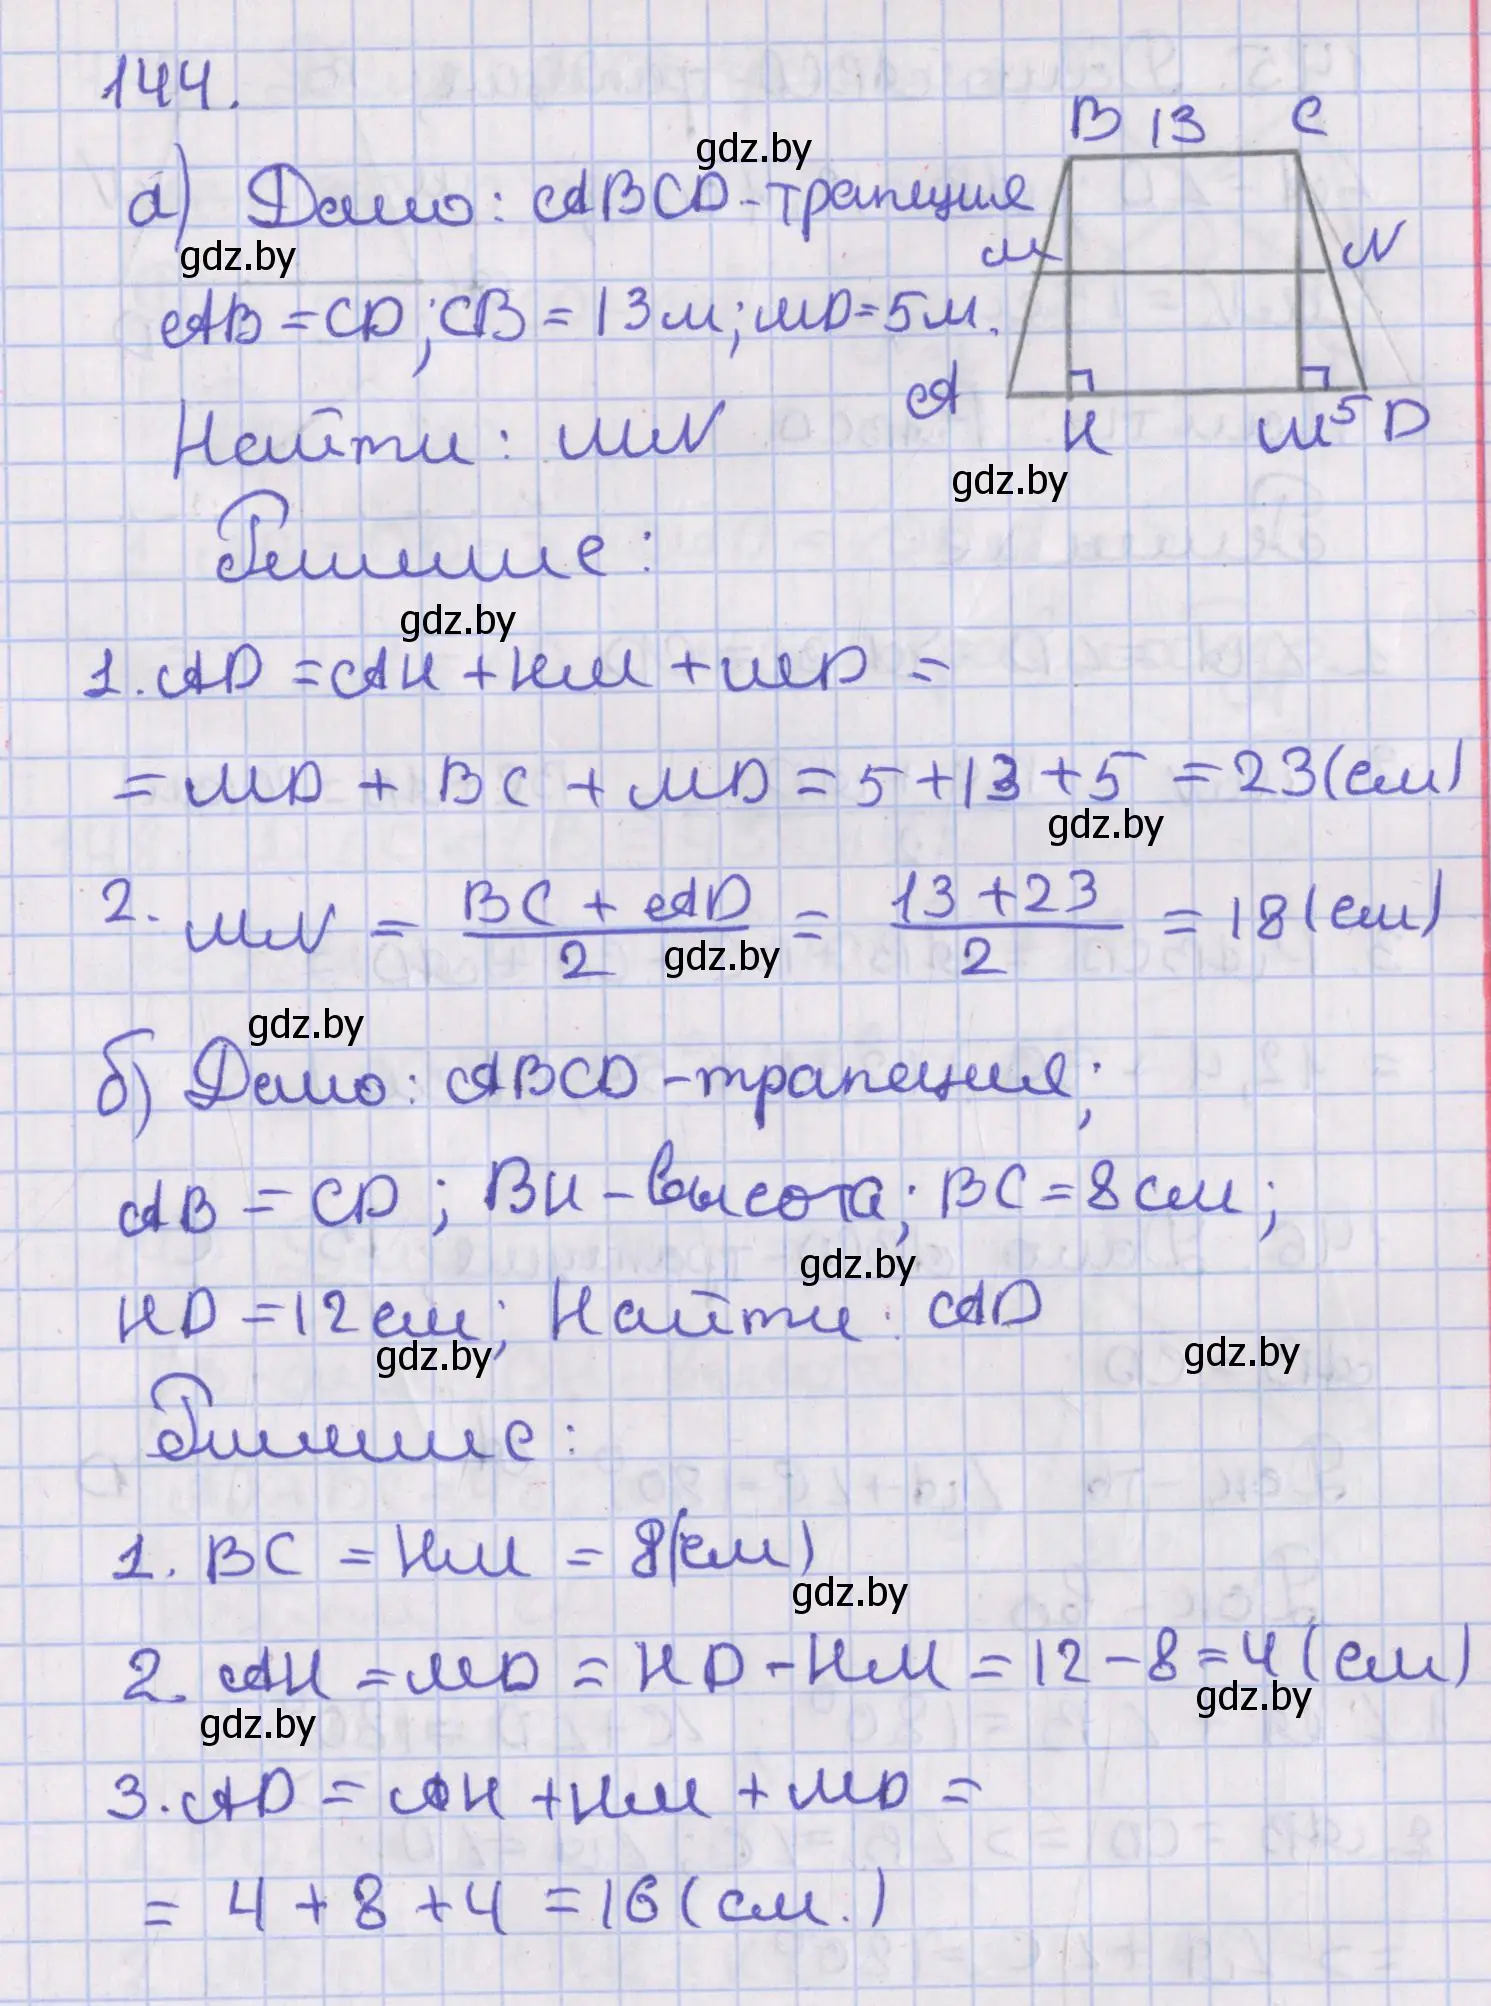 144.
B 13 C
gdz.by
а) Дано: ABCD-трапеция
M N
gdz.by
AB = CD; CB = 13м; MD=5м.
A H M 5 D
Найти: MN
gdz.by
Решение:
gdz.by
1. AD = AH + HM + MD =
= MD + BC + MD = 5 + 13 + 5 = 23 (см)
gdz.by
2. MN = (BC + AD)/2 = (13 + 23)/2 = 18 (см)
gdz.by
gdz.by
б) Дано: ABCD-трапеция;
AB = CD; BH-высота; BC = 8 см;
gdz.by
HD = 12 см; Найти: AD
gdz.by
gdz.by
Решение:
1. BC = HM = 8 (см)
gdz.by
2. AH = MD = HD - HM = 12 - 8 = 4 (см)
gdz.by
gdz.by
3. AD = AH + HM + MD =
= 4 + 8 + 4 = 16 (см.)